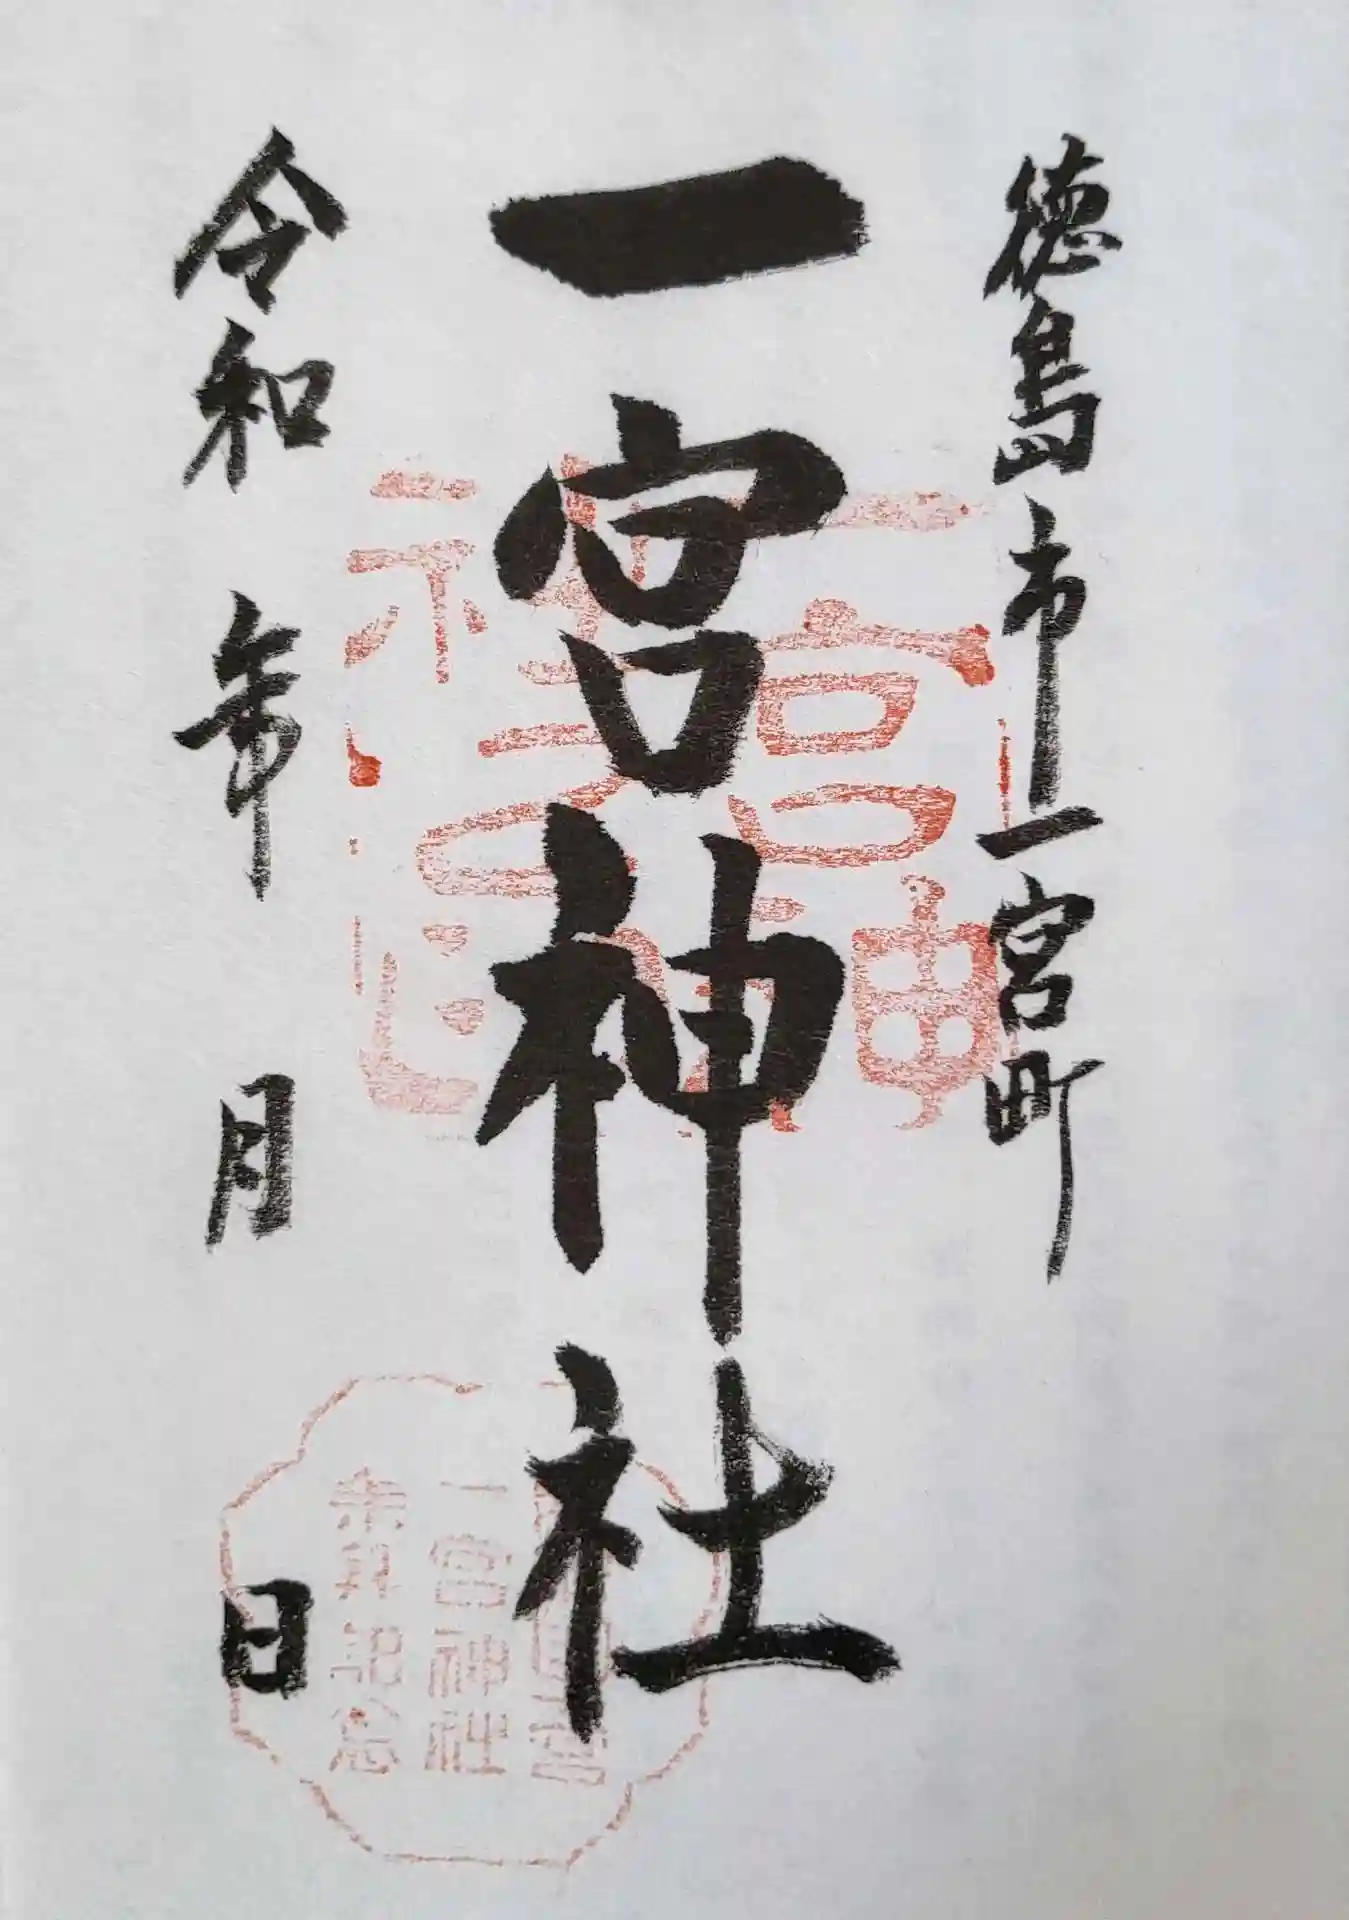 徳島市一宮町
一宮神社
令和 年 月 日
一宮神
社之印
一宮神社